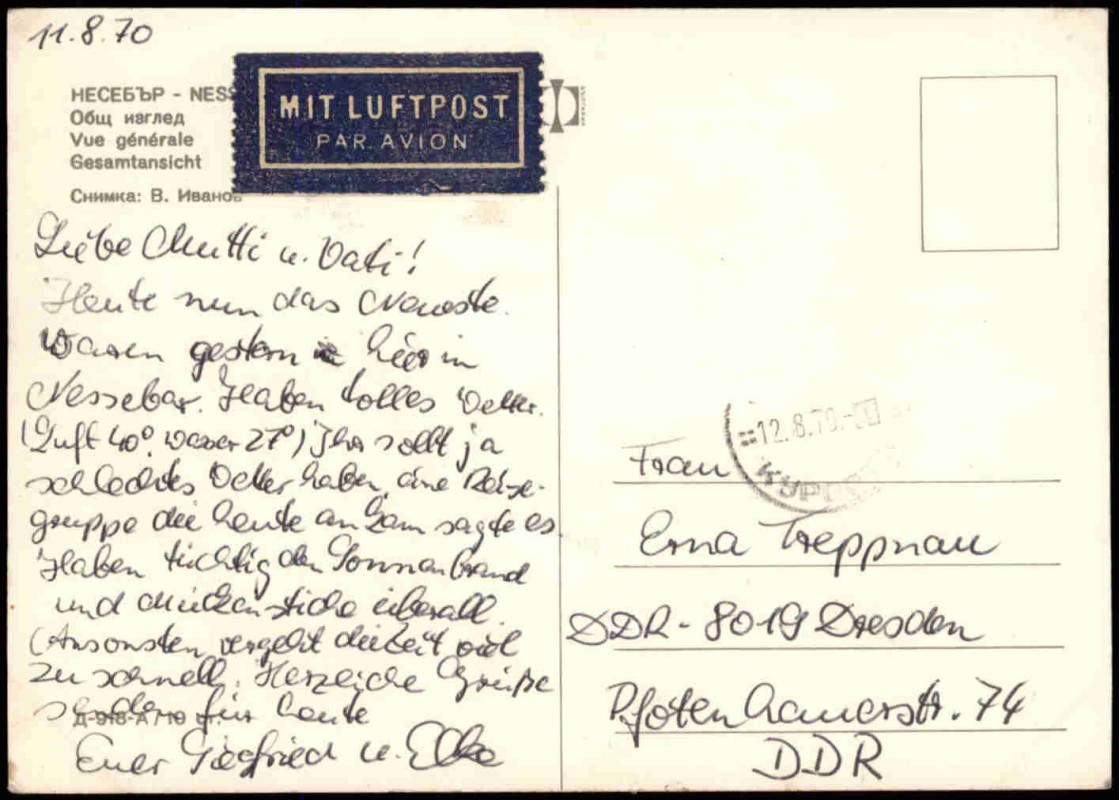 11.8.70
НЕСЕБЪР - NESS
Общ изглед
Vue générale
Gesamtansicht
Снимка: В. Иванов
MIT LUFTPOST
PAR AVION
Liebe Mutti u. Vati!
Heute nun das Neueste.
Waren gestern hier in
Nessebar. Haben tolles Wetter.
(Luft 40° Wasser 27°) Ihr sollt ja
schlechtes Wetter haben, eine Reise-
gruppe die heute ankam sagte es.
Haben tüchtig den Sonnenbrand
und Mückenstiche überall.
(Ansonsten vergeht die Zeit viel
zu schnell. Herzliche Grüße
senden für heute
Euer Siegfried u. Elke
12.8.70
КУРО
Frau
Erna Treppnau
DDR-8019 Dresden
Pfotenhauerstr. 74
DDR